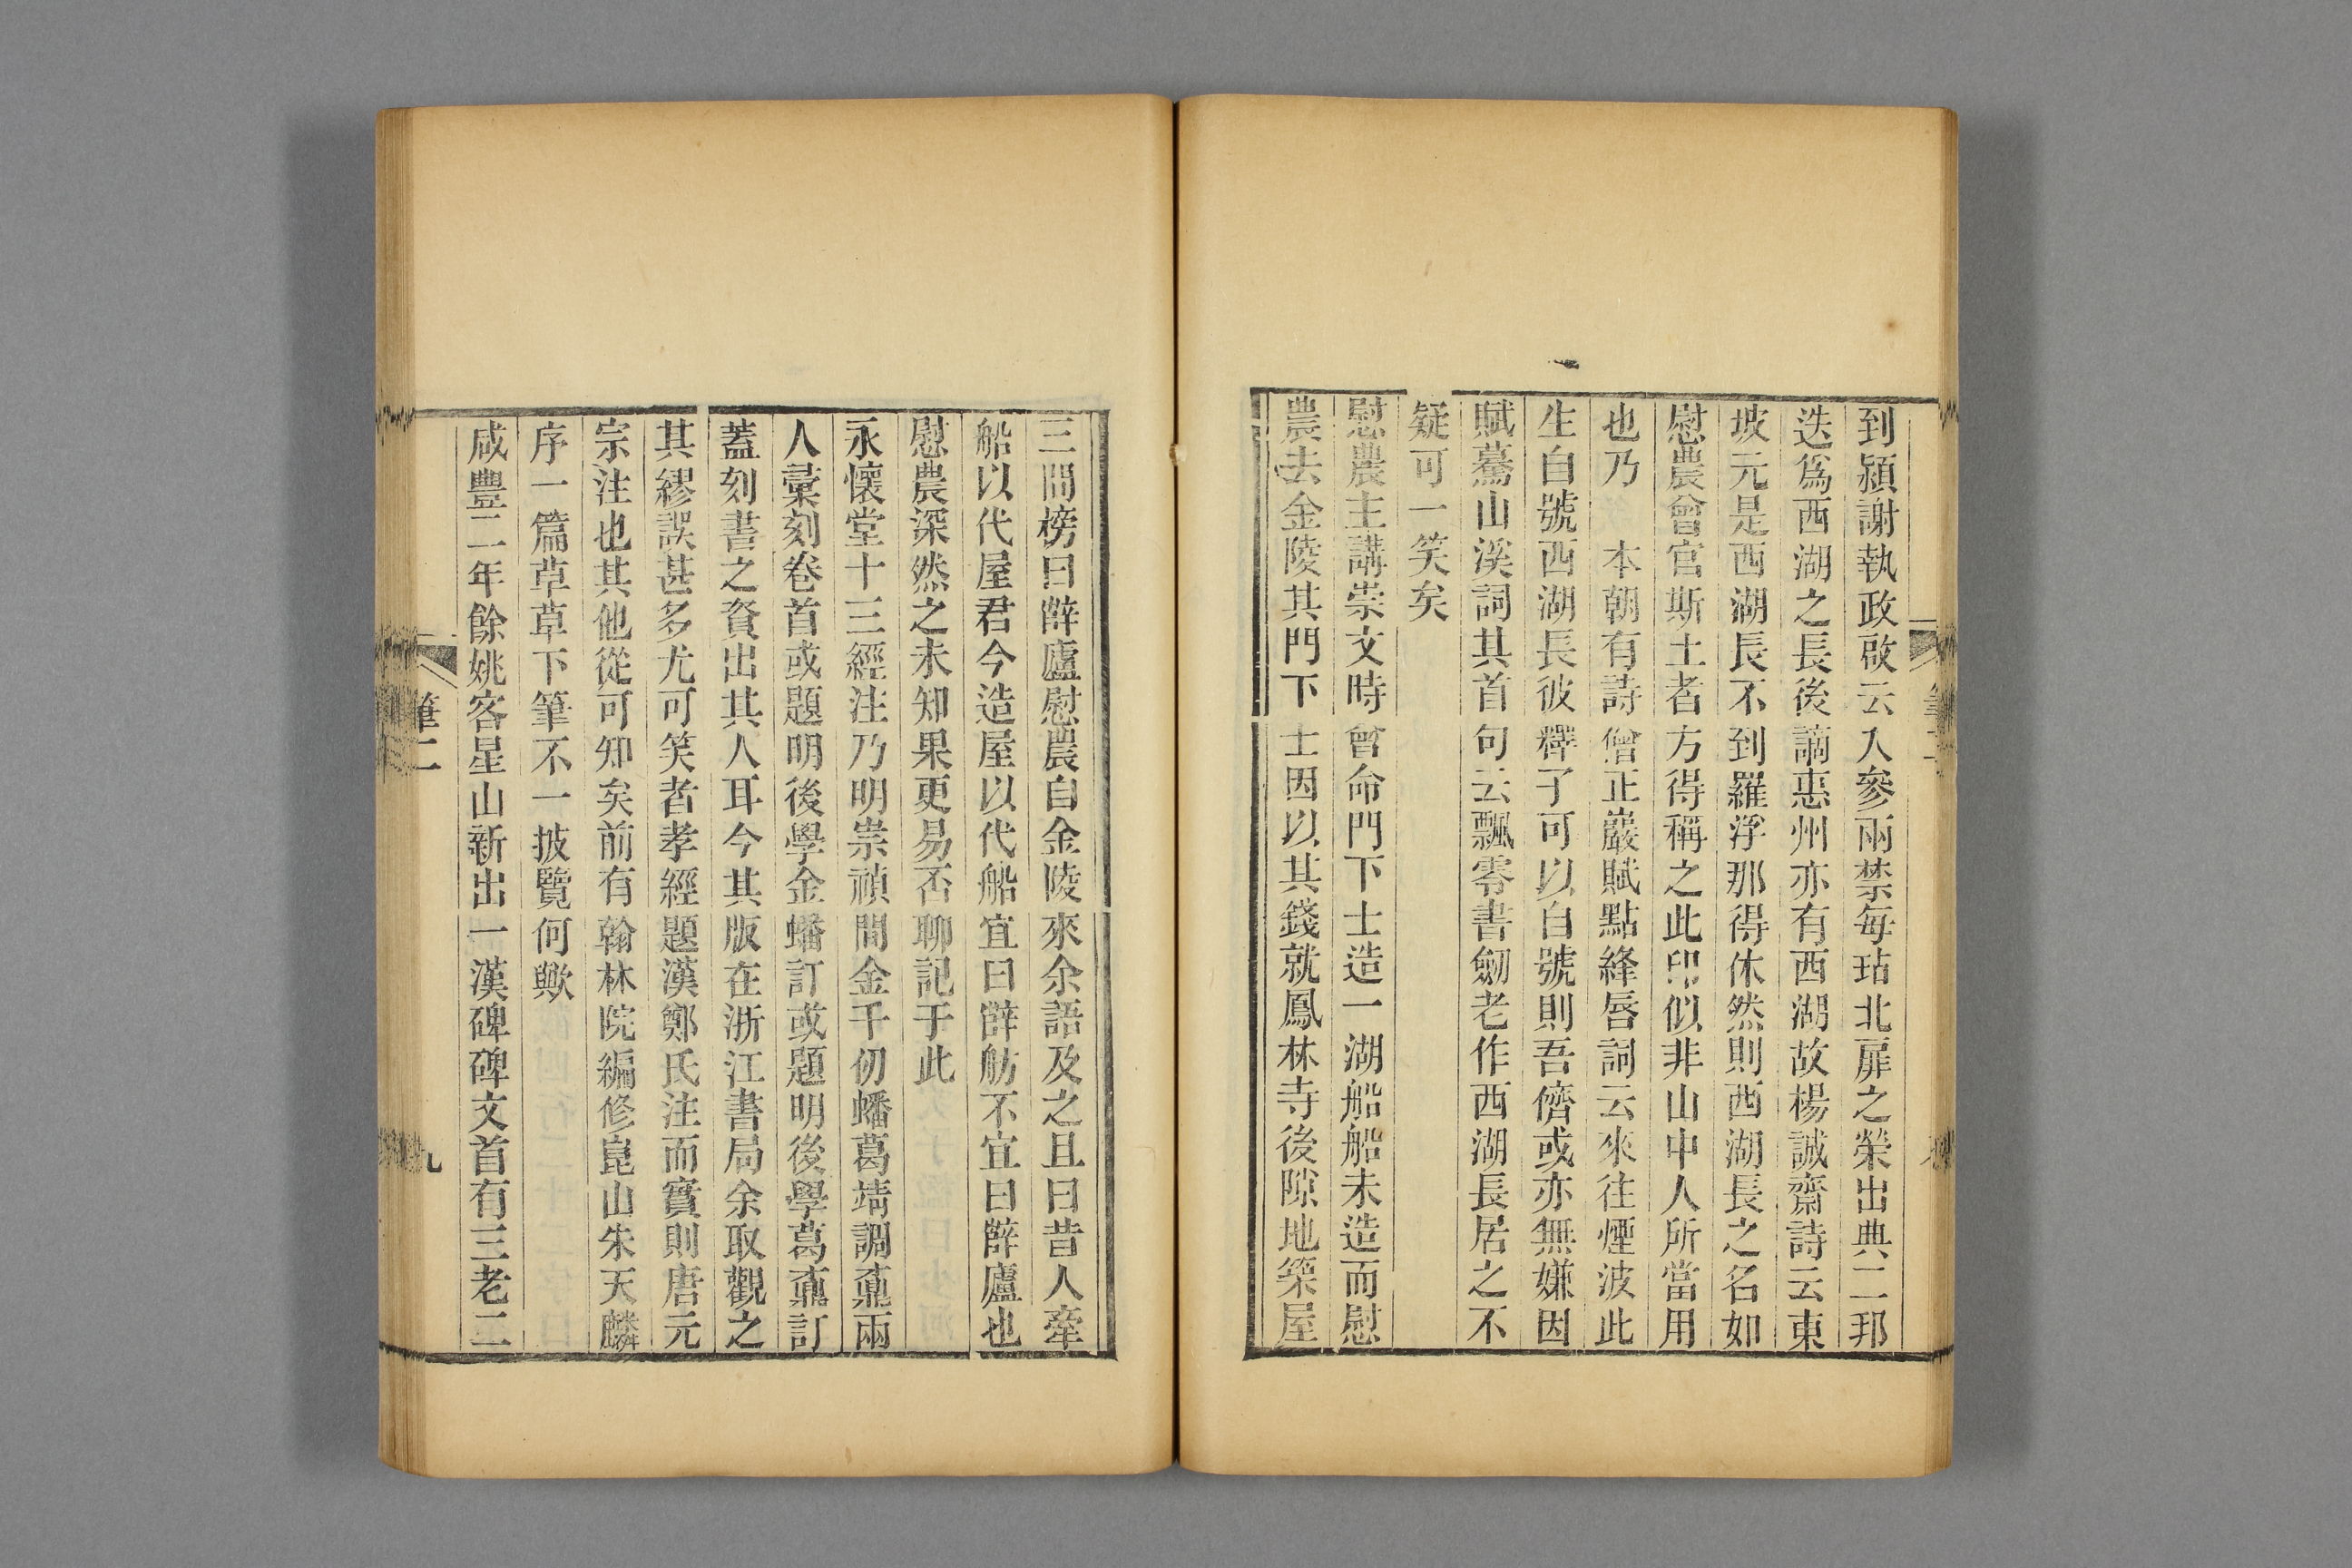 到潁謝執政啟云入參兩禁每玷北扉之榮出典二邦
迭爲西湖之長後謫惠州亦有西湖故楊誠齋詩云東
坡元是西湖長不到羅浮那得休然則西湖長之名如
慰農曾官斯土者方得稱之此印似非山中人所當用
也乃　本朝有詩僧正巖賦點絳唇詞云來往煙波此
生自號西湖長彼釋子可以自號則吾儕或亦無嫌因
賦驀山溪詞其首句云飄零書劒老作西湖長居之不
疑可一笑矣
慰農主講崇文時曾命門下士造一湖船船未造而慰
農去金陵其門下士因以其錢就鳳林寺後隙地築屋
三間榜曰薛廬慰農自金陵來余語及之且曰昔人牽
船以代屋君今造屋以代船宜曰薛舫不宜曰薛廬也
慰農深然之未知果更易否聊記于此
永懷堂十三經注乃明崇禎間金千仞蟠葛靖調鼒兩
人彙刻卷首或題明後學金蟠訂或題明後學葛鼒訂
蓋刻書之資出其人耳今其版在浙江書局余取觀之
其繆誤甚多尤可笑者孝經題漢鄭氏注而實則唐元
宗注也其他從可知矣前有翰林院編修崑山朱天麟
序一篇草草下筆不一披覽何歟
咸豐二年餘姚客星山新出一漢碑碑文首有三老二
筆二
九